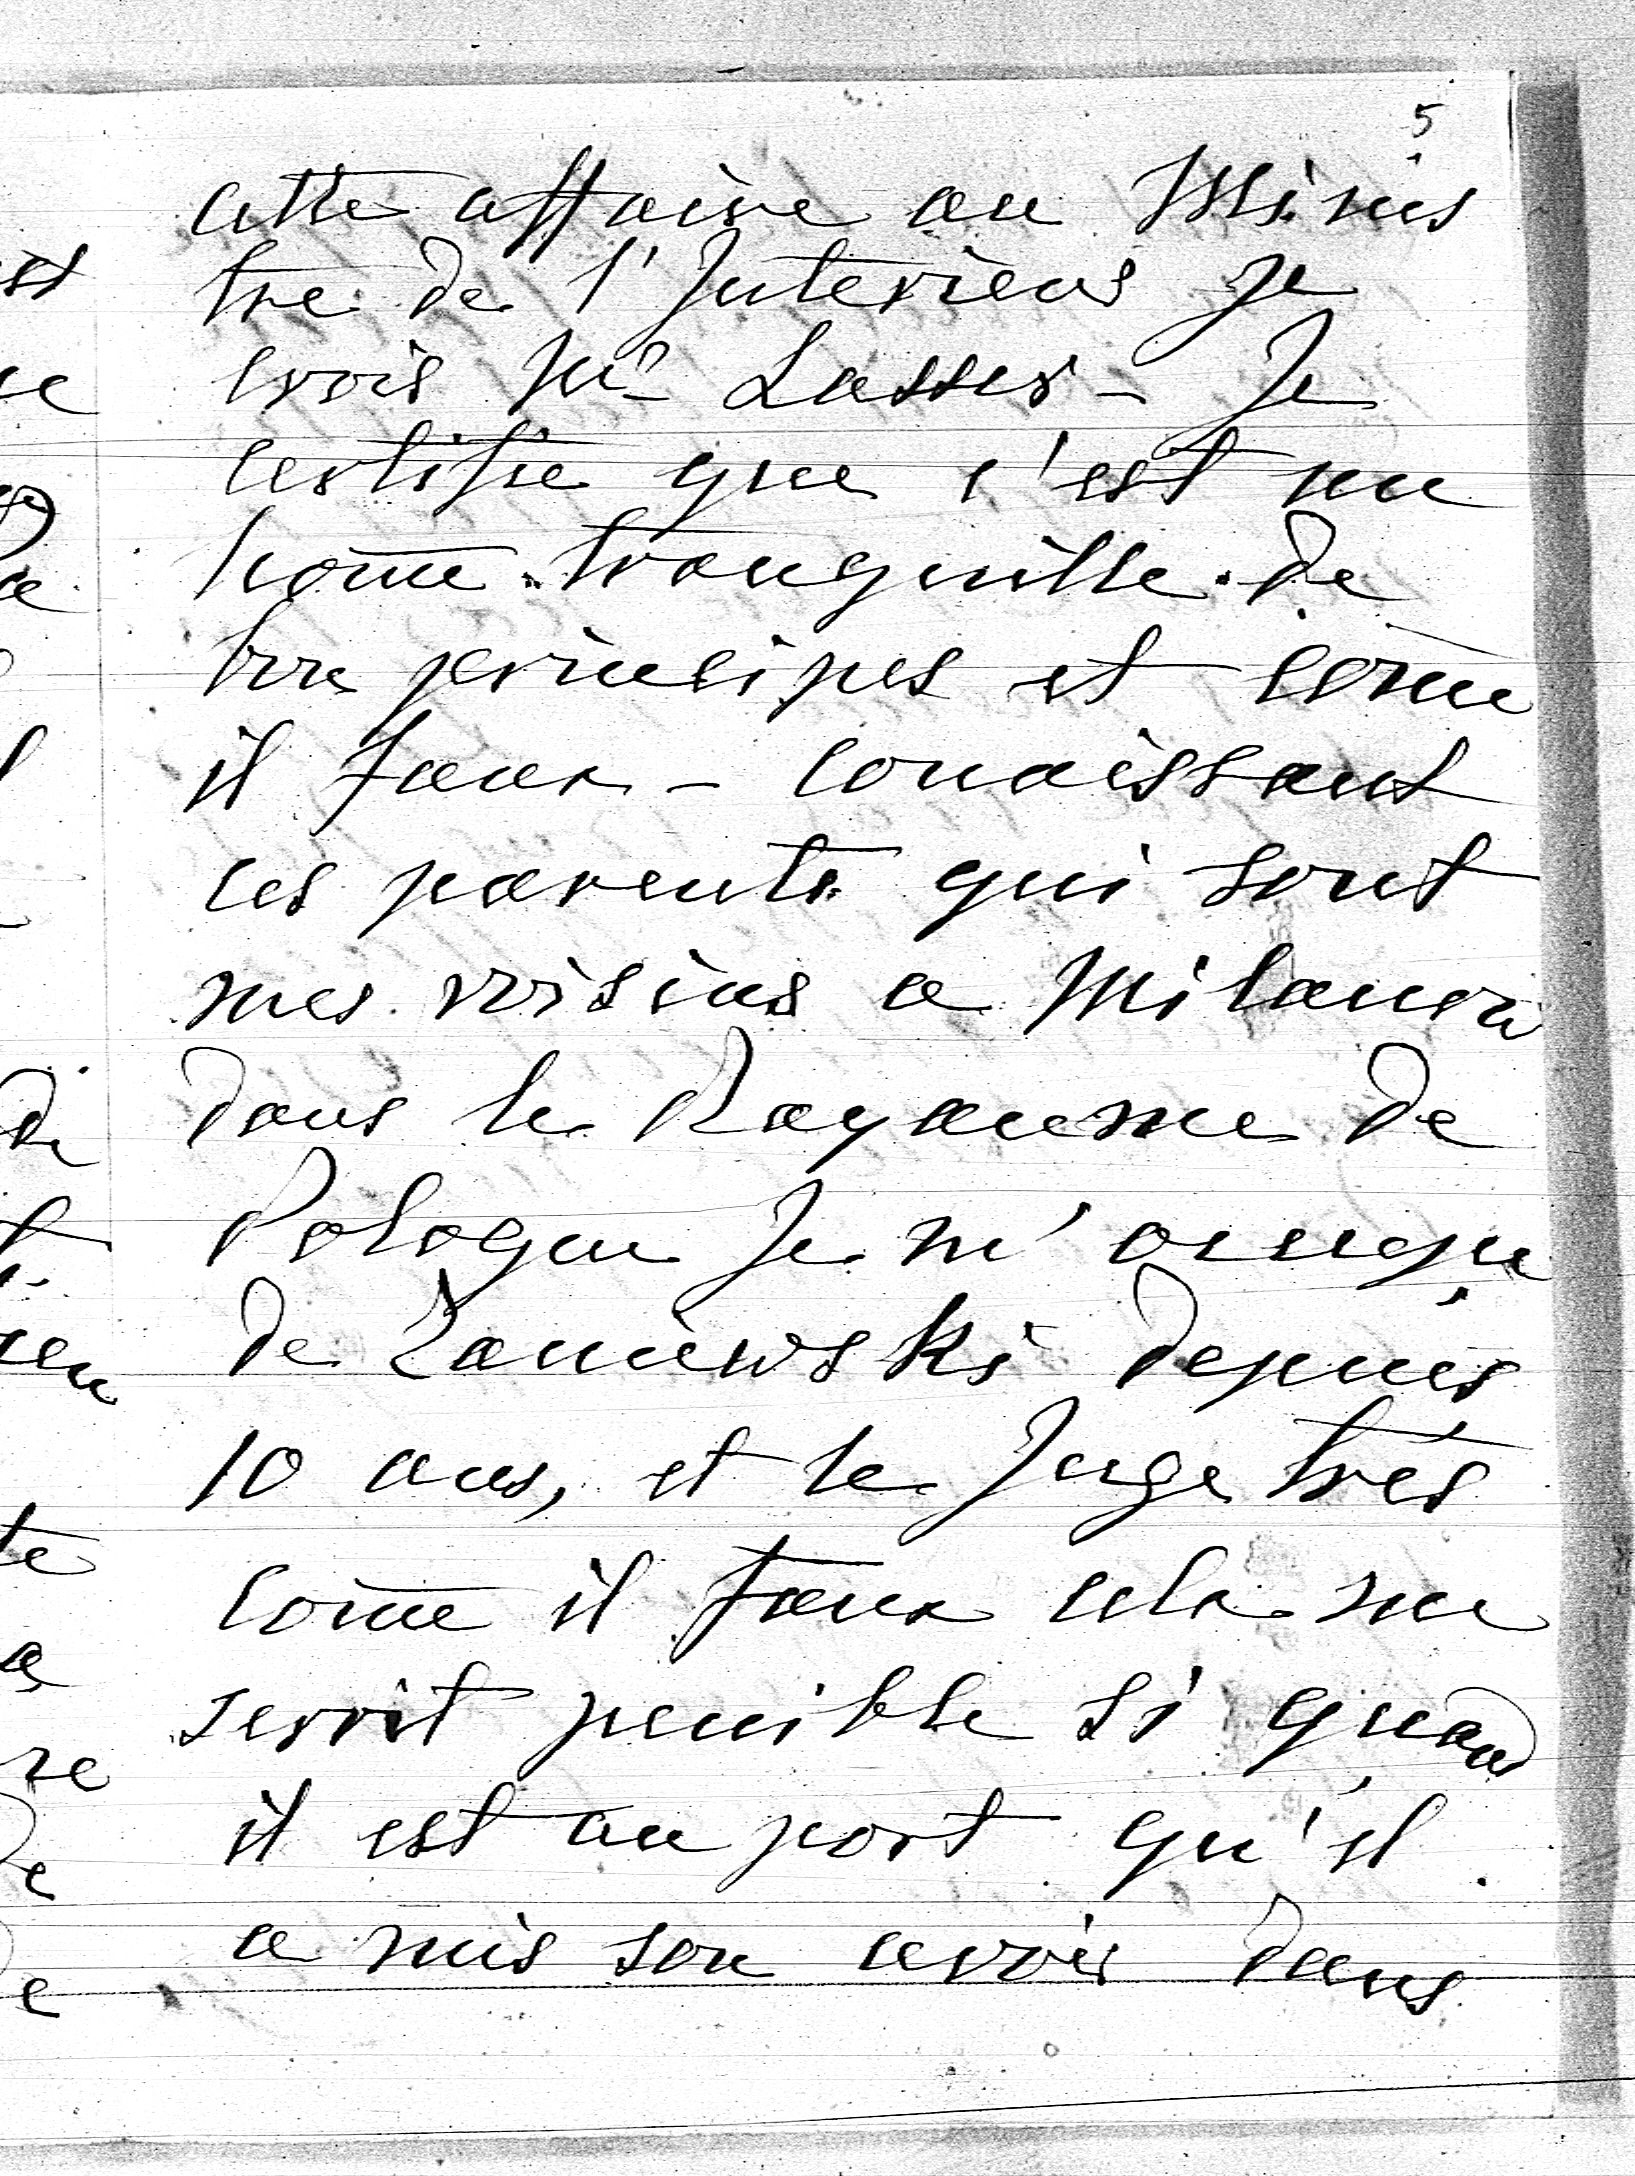 5
cette affaire au Minis
tre de l'Interieur je
crois Mr Lasser – Je
certifie que c'est un
home tranquille de
bon principes et come
il faux – conaissant
ces parents qui sont
mes voisins a Milanow
dans le Royaume de
Pologne Je m'ocupe
de Zaniewski depuis
10 ans, et le Juge très
come il faux cela me
seroit penible si quand
il est au port qu'il
a mis son avoir dans